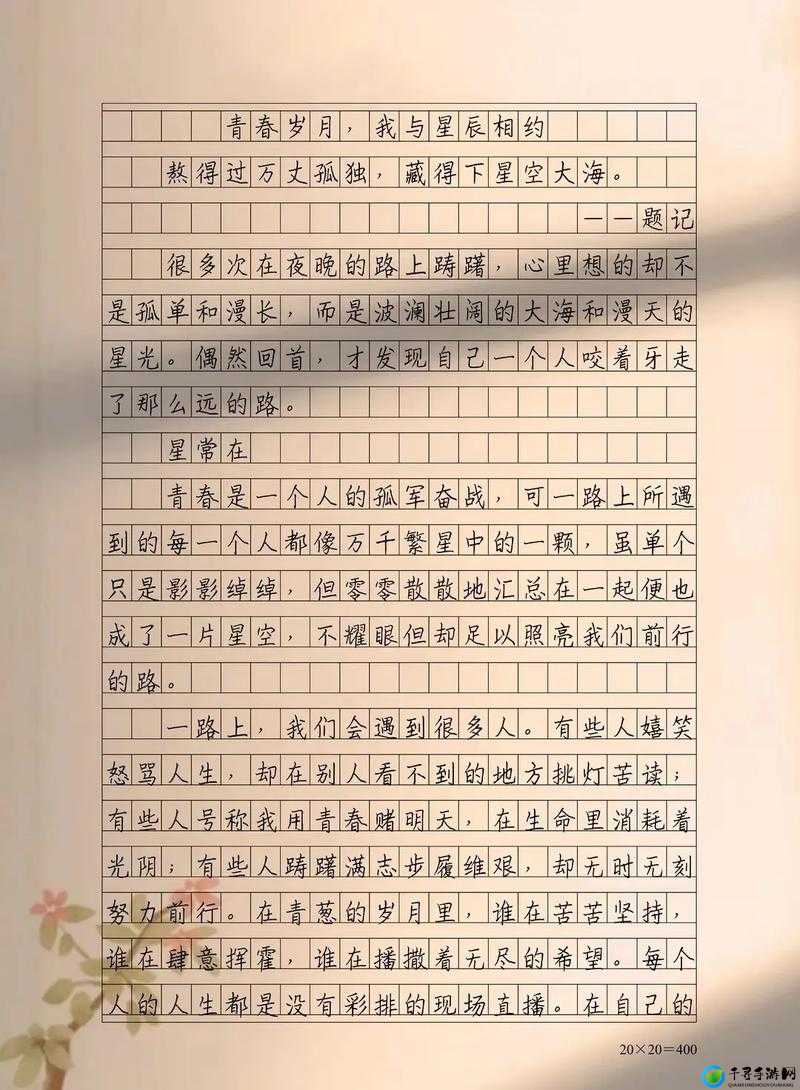 青春岁月，我与星辰相约
熬得过万丈孤独，藏得下星空大海。
——题记
很多次在夜晚的路上踌躇，心里想的却不
是孤单和漫长，而是波澜壮阔的大海和漫天的
星光。偶然回首，才发现自己一个人咬着牙走
了那么远的路。
星常在
青春是一个人的孤军奋战，可一路上所遇
到的每一个人都像万千繁星中的一颗，虽单个
只是影影绰绰，但零零散散地汇总在一起便也
成了一片星空，不耀眼但却足以照亮我们前行
的路。
一路上，我们会遇到很多人。有些人嬉笑
怒骂人生，却在别人看不到的地方挑灯苦读；
有些人号称我用青春赌明天，在生命里消耗着
光阴；有些人踌躇满志步履维艰，却无时无刻
努力前行。在青葱的岁月里，谁在苦苦坚持，
谁在肆意挥霍，谁在播撒着无尽的希望。每个
人的人生都是没有彩排的现场直播。在自己的
20×20=400
千寻手游网